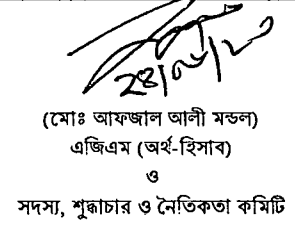 (মোঃ আফজাল আলী মন্ডল)
এজিএম (অর্থ-হিসাব)
ও
সদস্য, শুদ্ধাচার ও নৈতিকতা কমিটি